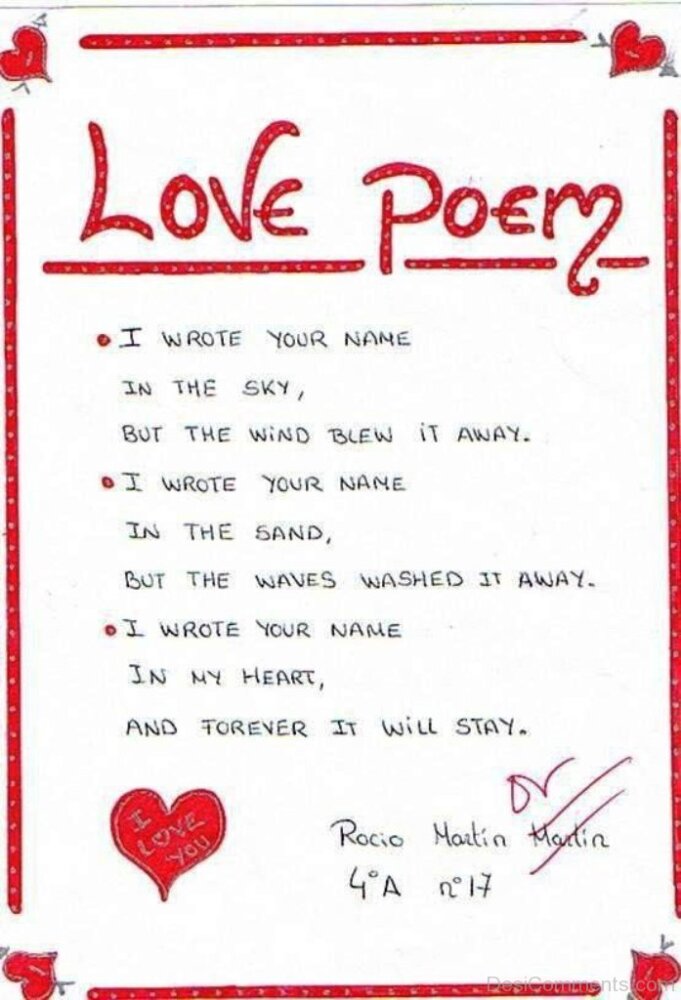 LOVE POEM
• I WROTE YOUR NAME
IN THE SKY,
BUT THE WIND BLEW IT AWAY.
• I WROTE YOUR NAME
IN THE SAND,
BUT THE WAVES WASHED IT AWAY.
• I WROTE YOUR NAME
IN MY HEART,
AND FOREVER IT WILL STAY.
I
LOVE
YOU
Rocio Martín Martín
4º A nº 17
DesiComments.com